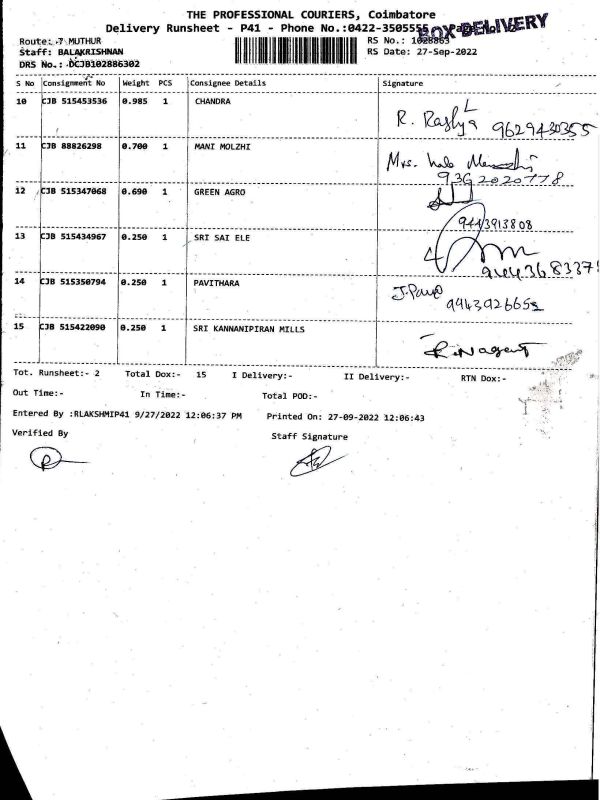 THE PROFESSIONAL COURIERS, Coimbatore
Delivery Runsheet - P41 - Phone No.:0422-3505555
BOX DELIVERY
Route: 7 MUTHUR
RS No.: 1028863
Staff: BALAKRISHNAN
RS Date: 27-Sep-2022
DRS No.: DCJB102886302
S No Consignment No Weight PCS Consignee Details Signature
10 CJB 515453536 0.985 1 CHANDRA
R. 9629430355
11 CJB 88826298 0.700 1 MANI MOLZHI
Mrs.
9362020778
12 CJB 515347068 0.690 1 GREEN AGRO
9443913808
13 CJB 515434967 0.250 1 SRI SAI ELE
14 CJB 515350794 0.250 1 PAVITHARA
J.
15 CJB 515422090 0.250 1 SRI KANNANIPIRAN MILLS
Tot. Runsheet:- 2 Total Dox:- 15 I Delivery:- II Delivery:- RTN Dox:-
Out Time:- In Time:- Total POD:-
Entered By :RLAKSHMIP41 9/27/2022 12:06:37 PM Printed On: 27-09-2022 12:06:43
Verified By
Staff Signature